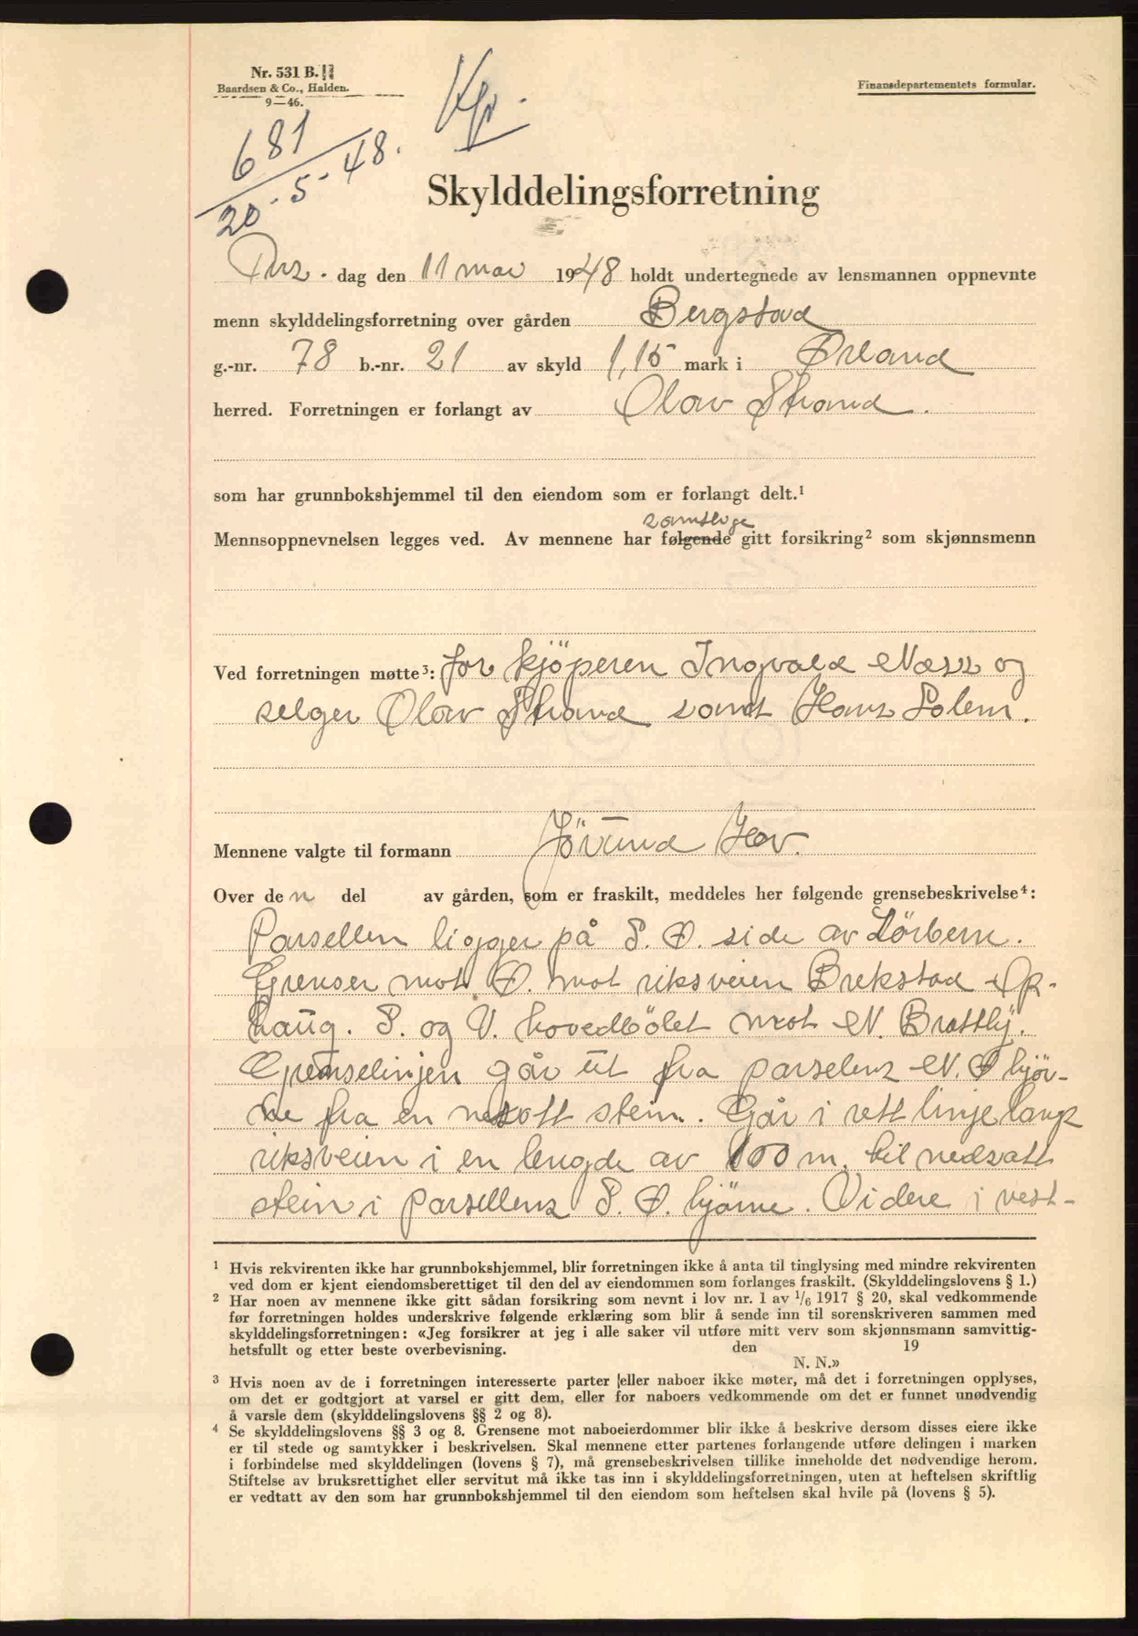 Nr. 531 B.
Baardsen & Co., Halden.
9—46.
Finansdepartementets formular.
681
20-5-48.
Skylddelingsforretning
Tirs.dag den 11 mai 1948 holdt undertegnede av lensmannen oppnevnte
menn skylddelingsforretning over gården Bergstad
g.-nr. 78 b.-nr. 21 av skyld 1,15 mark i Ørland
herred. Forretningen er forlangt av Olav Strand.
som har grunnbokshjemmel til den eiendom som er forlangt delt.¹
samtlige
Mennsoppnevnelsen legges ved. Av mennene har følgende gitt forsikring² som skjønnsmenn
Ved forretningen møtte³: for kjöperen Ingvald Næss og
selger Olav Strand samt Hans Solem.
Mennene valgte til formann Jörund Hov.
Over den del av gården, som er fraskilt, meddeles her følgende grensebeskrivelse⁴:
Parsellen ligger på S. Ø. side av Lörbern.
Grenser mot Ø. mot riksveien Brekstad - Op-
haug. S. og V. hovedbölet mot N. Brattly.
Grenselinjen går ut fra parselens N. Ø hjör-
ne fra en nedsatt stein. Går i rett linje langs
riksveien i en lengde av 100 m. til nedsatt
stein i parsellens S. Ø. hjörne. Videre i vest-
¹ Hvis rekvirenten ikke har grunnbokshjemmel, blir forretningen ikke å anta til tinglysing med mindre rekvirenten
ved dom er kjent eiendomsberettiget til den del av eiendommen som forlanges fraskilt. (Skylddelingslovens § 1.)
² Har noen av mennene ikke gitt sådan forsikring som nevnt i lov nr. 1 av 1/6 1917 § 20, skal vedkommende
før forretningen holdes underskrive følgende erklæring som blir å sende inn til sorenskriveren sammen med
skylddelingsforretningen: «Jeg forsikrer at jeg i alle saker vil utføre mitt verv som skjønnsmann samvittig-
hetsfullt og etter beste overbevisning. den 19
N. N.»
³ Hvis noen av de i forretningen interesserte parter eller naboer ikke møter, må det i forretningen opplyses,
om det er godtgjort at varsel er gitt dem, eller for naboers vedkommende om det er funnet unødvendig
å varsle dem (skylddelingslovens §§ 2 og 8).
⁴ Se skylddelingslovens §§ 3 og 8. Grensene mot naboeierdommer blir ikke å beskrive dersom disses eiere ikke
er til stede og samtykker i beskrivelsen. Skal mennene etter partenes forlangende utføre delingen i marken
i forbindelse med skylddelingen (lovens § 7), må grensebeskrivelsen tillike inneholde det nødvendige herom.
Stiftelse av bruksrettighet eller servitut må ikke tas inn i skylddelingsforretningen, uten at heftelsen skriftlig
er vedtatt av den som har grunnbokshjemmel til den eiendom som heftelsen skal hvile på (lovens § 5).